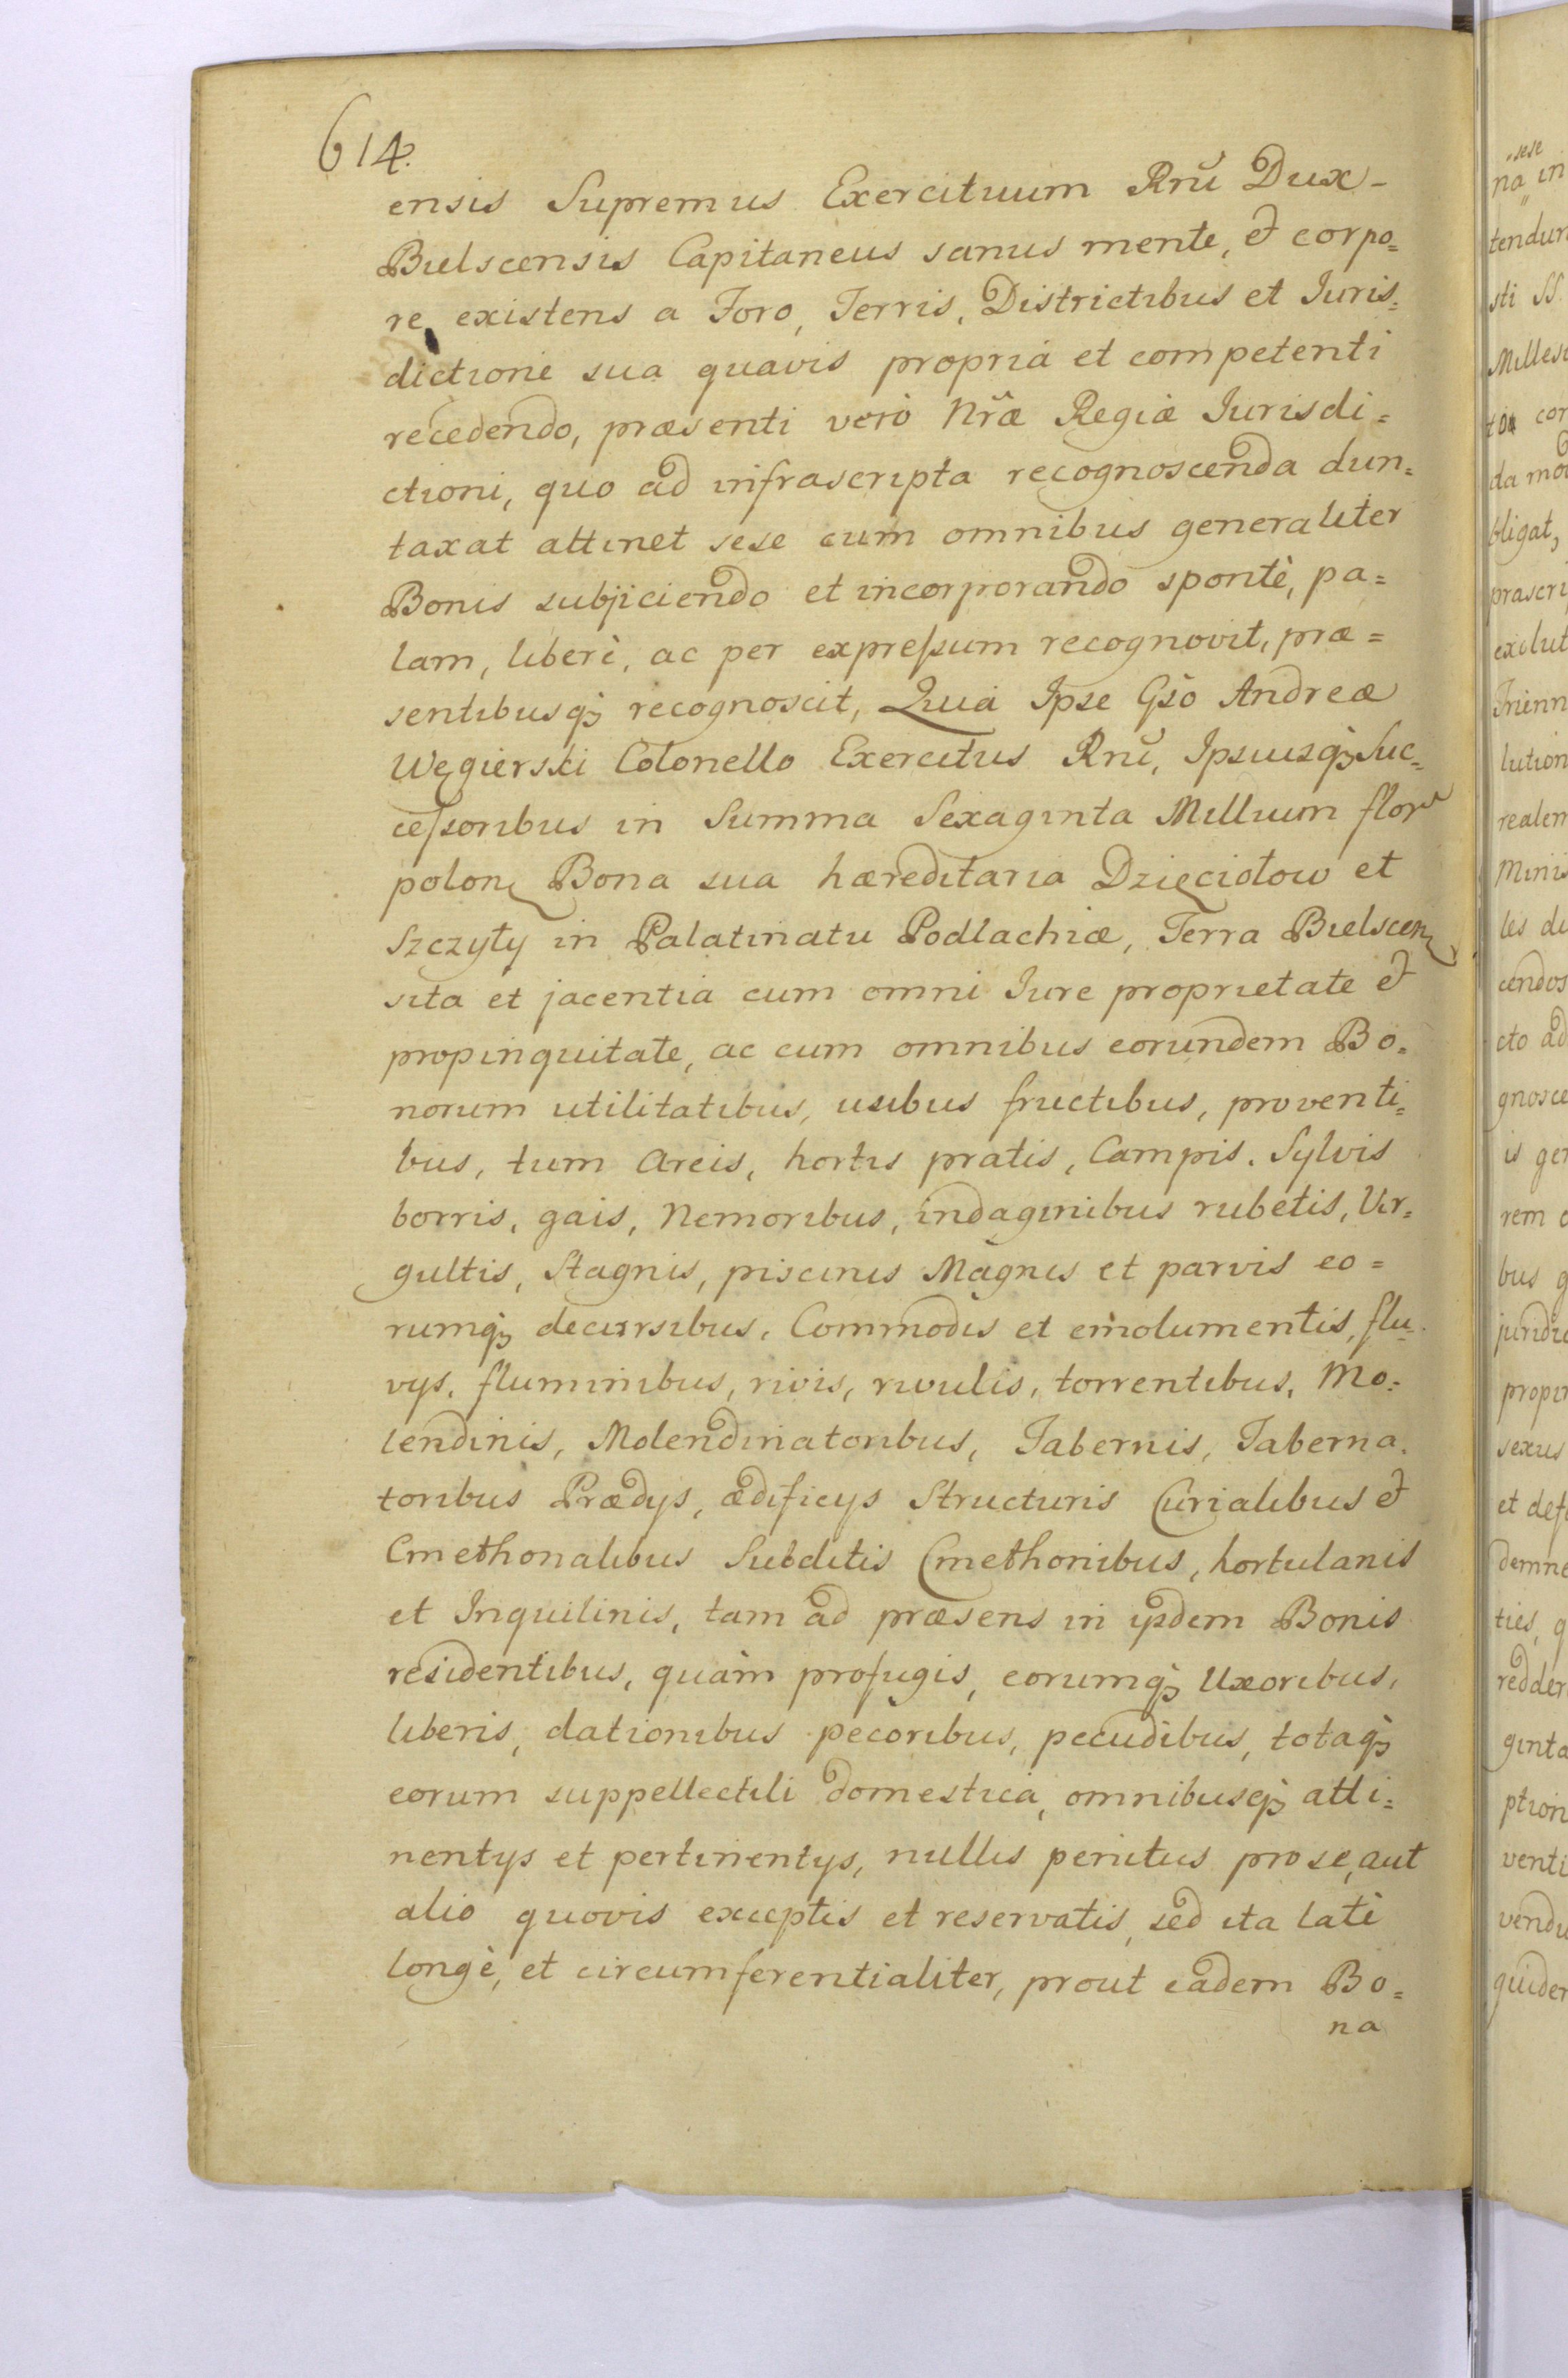 614.
ensis Supremus Exercituum Rnũ Dux-
Bielscensis Capitaneus sanus mente, et corpo=
re existens a Foro, Terris, Districtibus et Iuris=
dictione sua quavis propria et competenti
recedendo, præsenti verò Nrãæ Regiæ Iurisdi=
ctioni, quo ad infrascripta recognoscenda dun=
taxat attinet sese cum omnibus generaliter
Bonis subjiciendo et incorporando spontè, pa=
lam, liberè, ac per expreſsum recognovit, præ=
sentibusq́ꝫ recognoscit, Quia Ipse Gso Andreæ
Węgierski Colonello Exercitus Rnũ, Ipsiusq́ꝫ Suc=
ceſsoribus in Summa Sexaginta Millium flor
polon Bona sua hæreditaria Dzięciołow et
Szczyty in Palatinatu Podlachiæ, Terra Bielscen
sita et jacentia cum omni Iure proprietate et
propinquitate, ac cum omnibus eorundem Bo=
norum utilitatibus, usibus fructibus, proventi=
bus, tum Areis, hortis pratis, Campis. Sylvis
borris, gais, Nemoribus, indaginibus rubetis, Vir=
gultis, Stagnis, piscinis Magnis et parvis eo=
rumq́ꝫ decursibus, Commodis et emolumentis, flu=
vys, fluminibus, rivis, rivulis, torrentibus, Mo=
lendinis, Molendinatoribus, Tabernis, Taberna=
toribus Prædys, ædificys Structuris Curialibus et
Cmethonalibus Subditis Cmethonibus, hortulanis
et Inquilinis, tam ad præsens in ysdem Bonis
residentibus, quàm profugis, eorumq́ꝫ Uxoribus,
liberis, dationibus pecoribus, pecudibus, totaq́ꝫ
eorum suppellectili domestica, omnibusq́ꝫ atti=
nentys et pertinentys, nullis penitus pro se, aut
alio quovis exceptis et reservatis, sed ita latè
longè, et circumferentialiter, prout eadem Bo=
na
sese
na in
sti SS.
cor
bligat,
lution
cto ad
rem
sexus
et
ties,